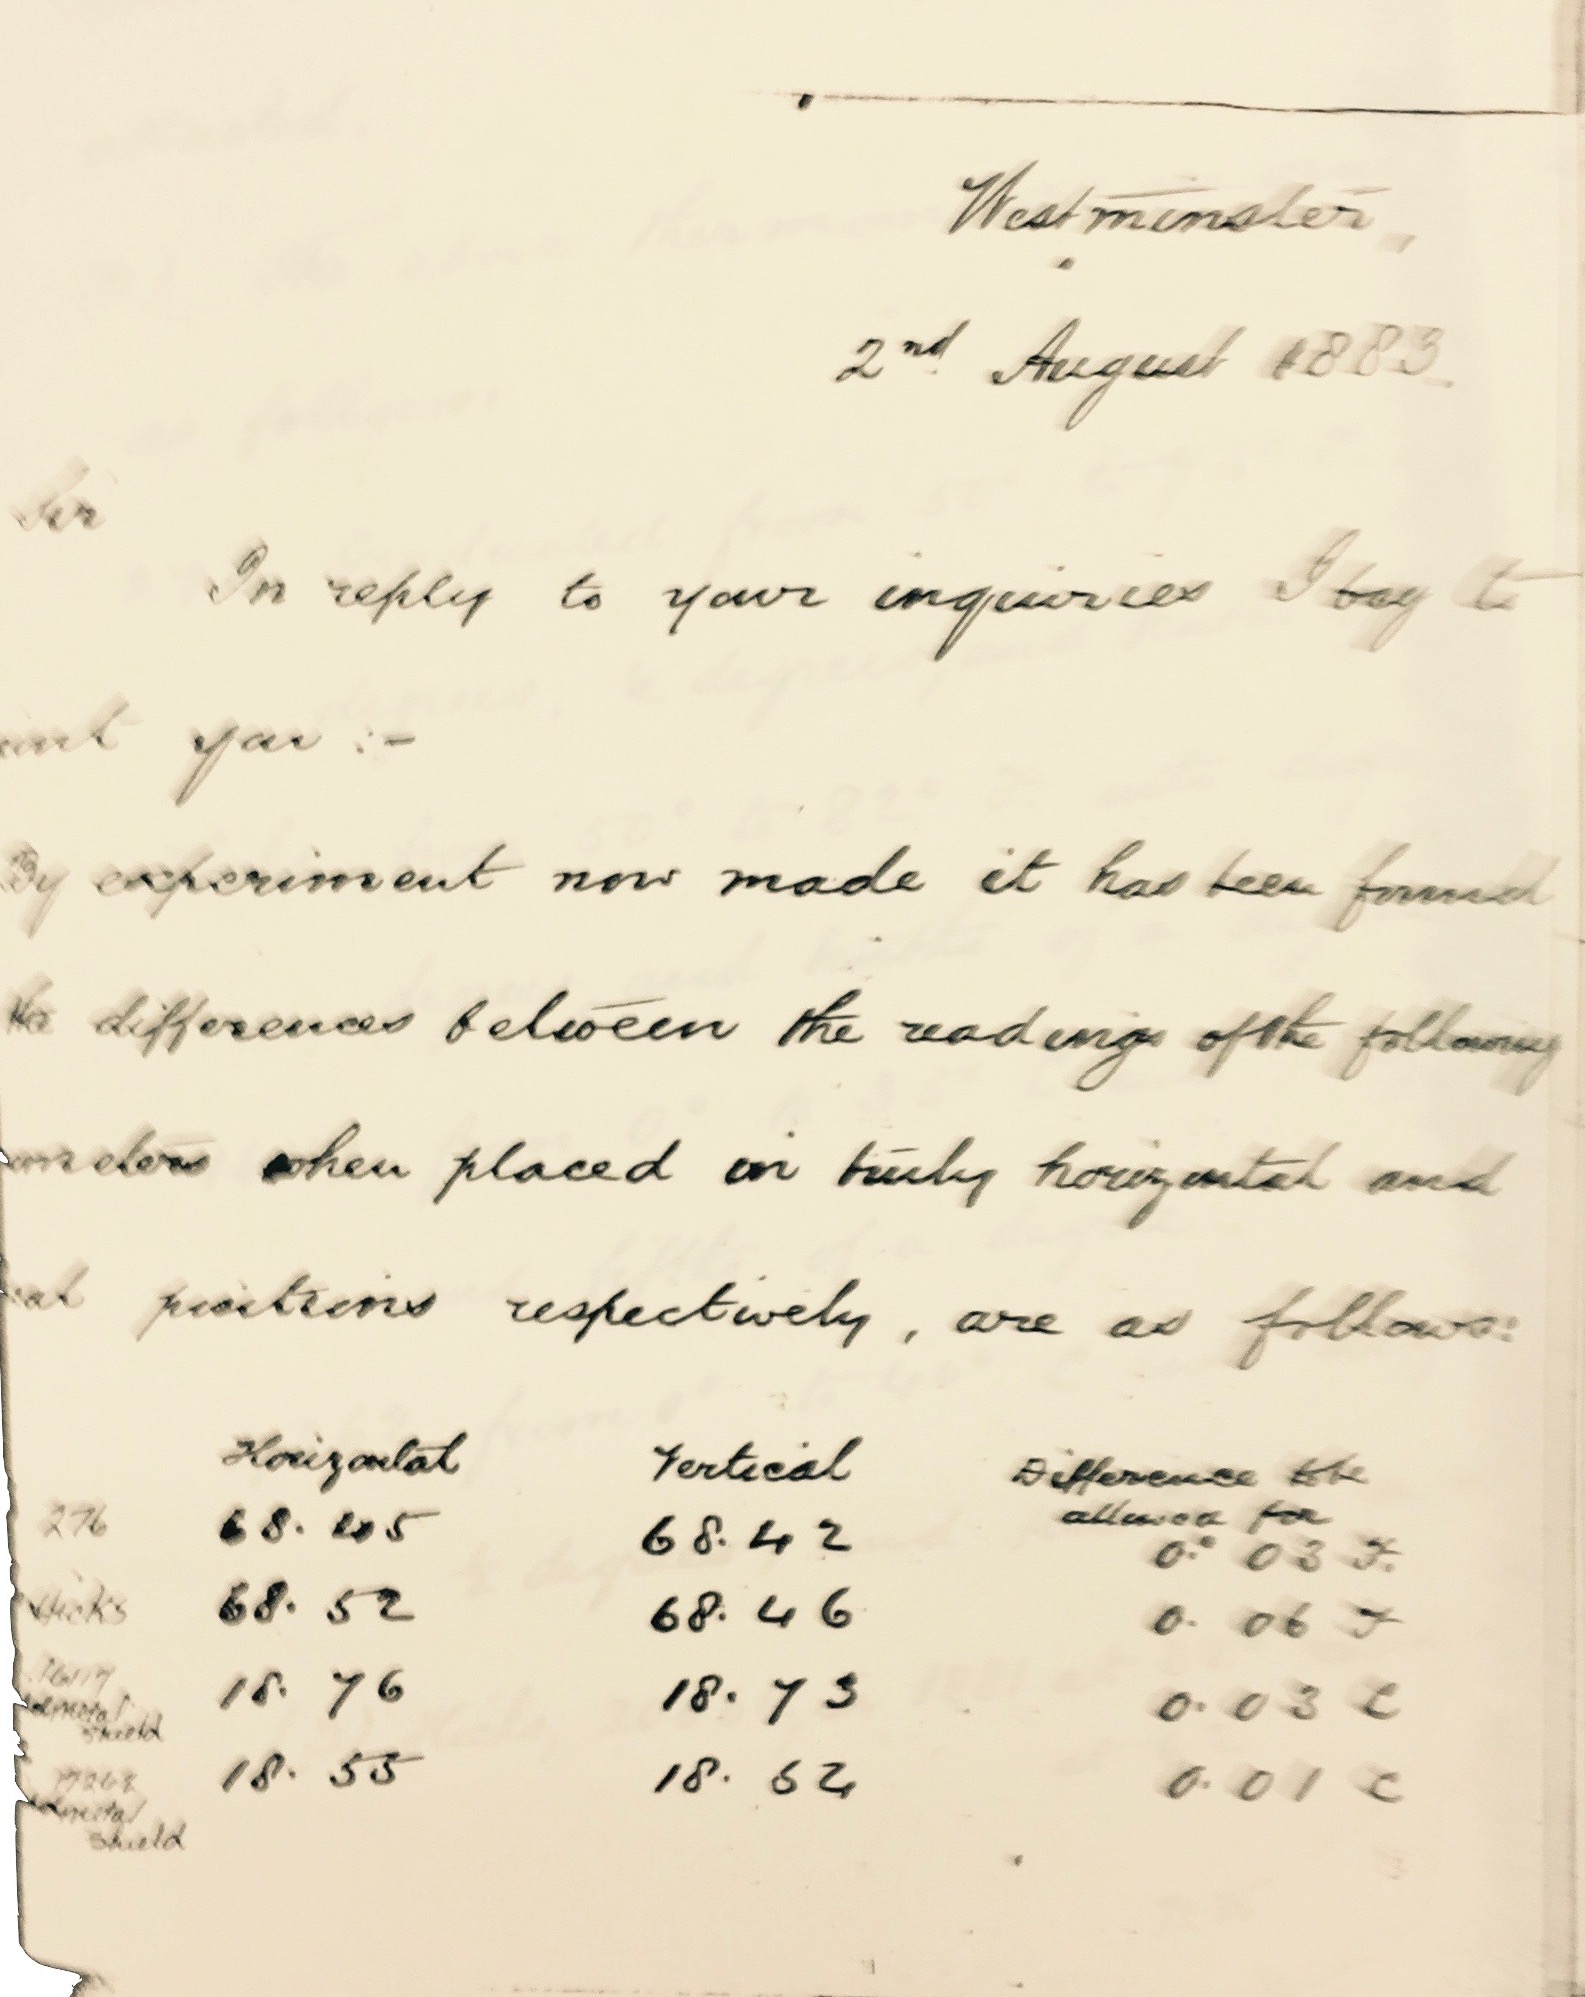 Westminster,
2nd August 1883.
Sir
In reply to your inquiries I beg to
you :-
By experiment now made it has been found
the differences between the readings of the following
when placed in truly horizontal and
positions respectively, are as follows:
Horizontal Vertical Difference to be
allowed for
276 68.45 68.42 0.° 03 F.
Hicks 68.52 68.46 0. 06 F
18.76 18.73 0. 03 C
shield
18.55 18.54 0. 01 C
shield